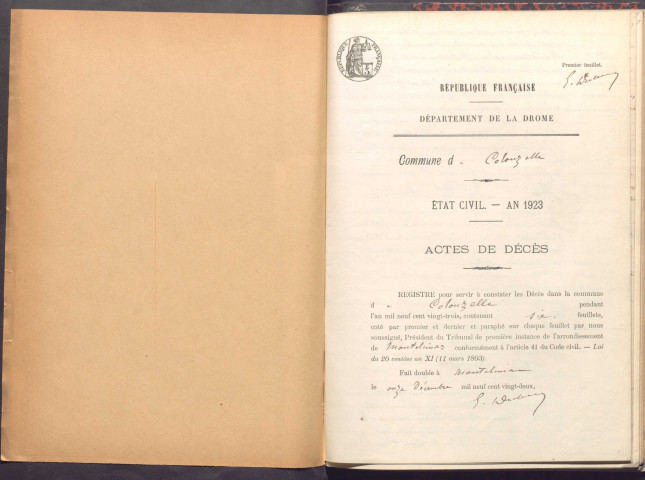 RÉPUBLIQUE FRANÇAISE
Premier feuillet.
RÉPUBLIQUE FRANÇAISE
DÉPARTEMENT DE LA DROME
Commune de Colonzelle
ÉTAT CIVIL. — AN 1923
ACTES DE DÉCÈS
REGISTRE pour servir à constater les Décès dans la commune
de Colonzelle pendant
l'an mil neuf cent vingt-trois, contenant six feuillets,
coté par premier et dernier et paraphé sur chaque feuillet par nous
soussigné, Président du Tribunal de première instance de l'arrondissement
de Montélimar conformément à l'article 41 du Code civil. — Loi
du 20 ventôse an XI (11 mars 1803)
Fait double à Montélimar
le onze Décembre mil neuf cent vingt-deux,